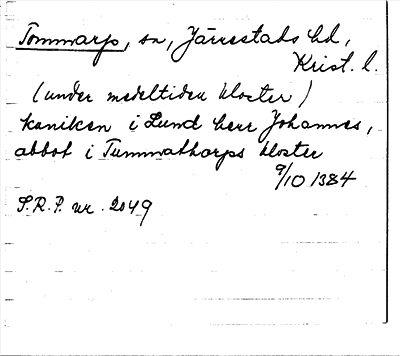 Tommarp, sn, Järrestads hd,
Krist. l.
(under medeltiden kloster)
kaniken i Lund herr Johannes,
abbot i Tummathorps kloster
9/10 1384
S.R.P. nr. 2049